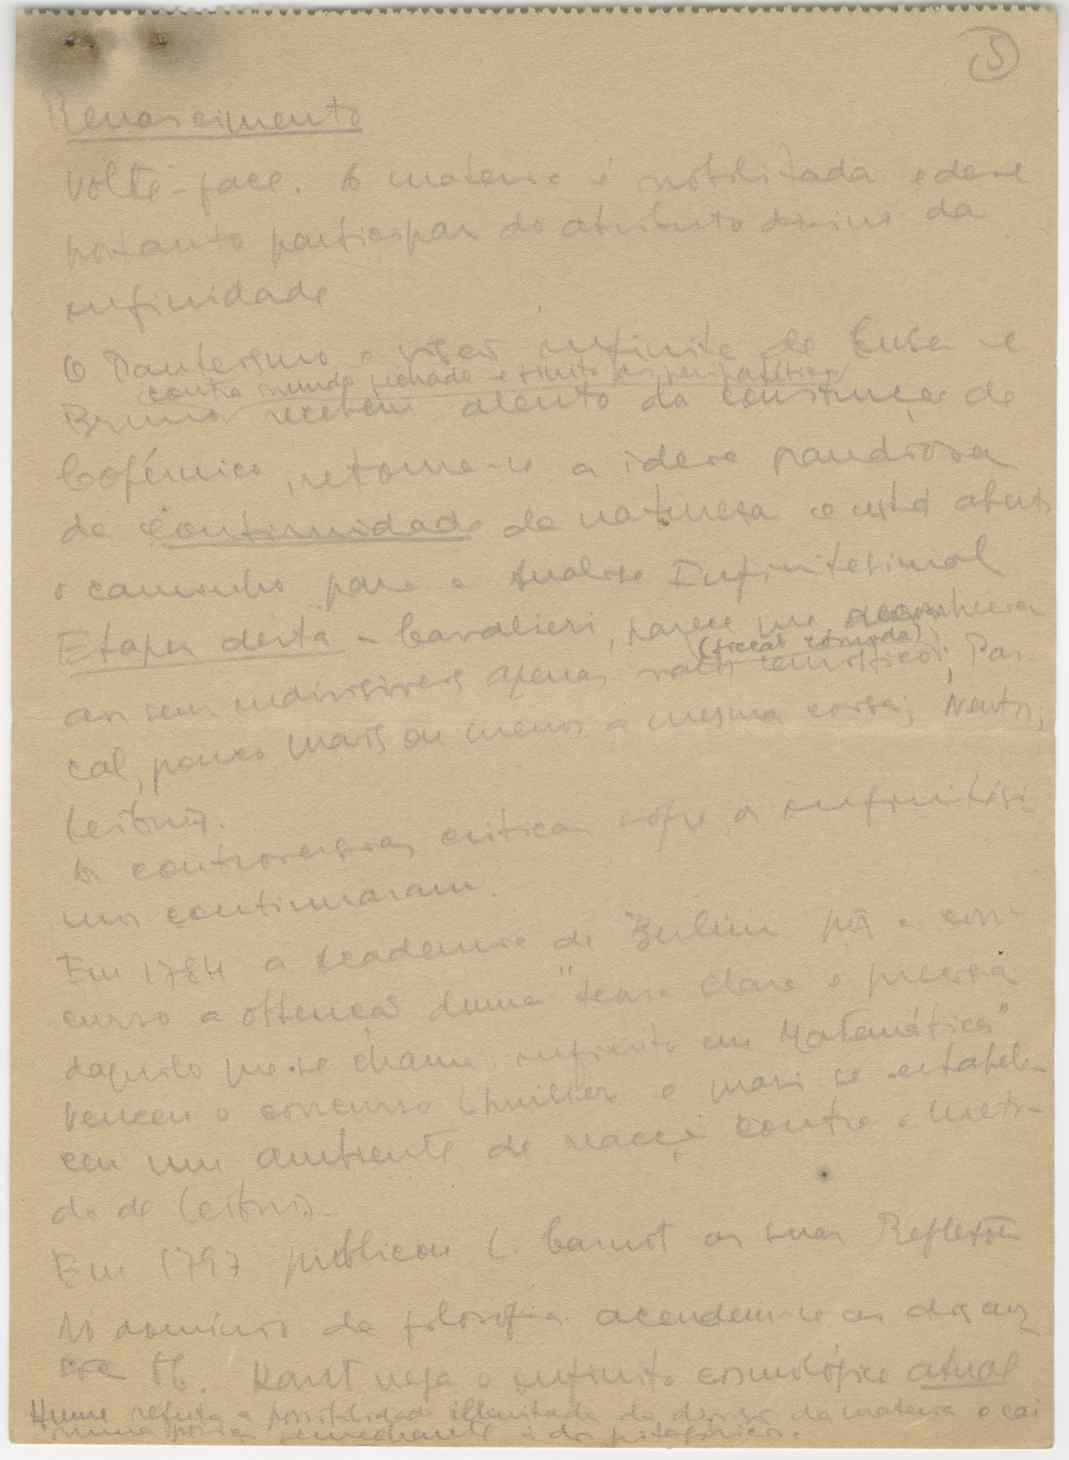 5
Renascimento
Volte-face. A materia é nobilitada e deve
portanto participar do atributo divino da
infinidade
O Panteismo e visão infinita de Cusa e
contra mundo fechado e finito dos peripatéticos
Bruno recebem alento da construção de
Copérnico, retoma-se a ideia grandiosa
de continuidade da natureza e está aberto
o caminho para a Analise Infinitesimal
Etapas desta - Cavalieri, parece que
(ficção cómoda)
os seus indivisíveis apenas ; Pas-
cal, pouco mais ou menos a mesma coisa; Newton;
Leibniz.
As controversias criticas sobre os infinitési-
mos continuaram.
Em 1784 a Academia de Berlim pôs a con-
curso a obtenção duma "teoria clara e precisa
daquilo que se chama infinito em Matemática"
Venceu o concurso Lhuilier e mais se estabele-
ceu um ambiente de reacção contra o méto-
do de Leibniz.
Em 1797 publicou L. Carnot as suas Reflexões
No dominio da filosofia acendem-se as
tb. Kant nega o infinito cosmológico atual
Hume refuta a possibilidade illimitada da divisão da materia e cai
numa posição semelhante á dos pitagóricos.